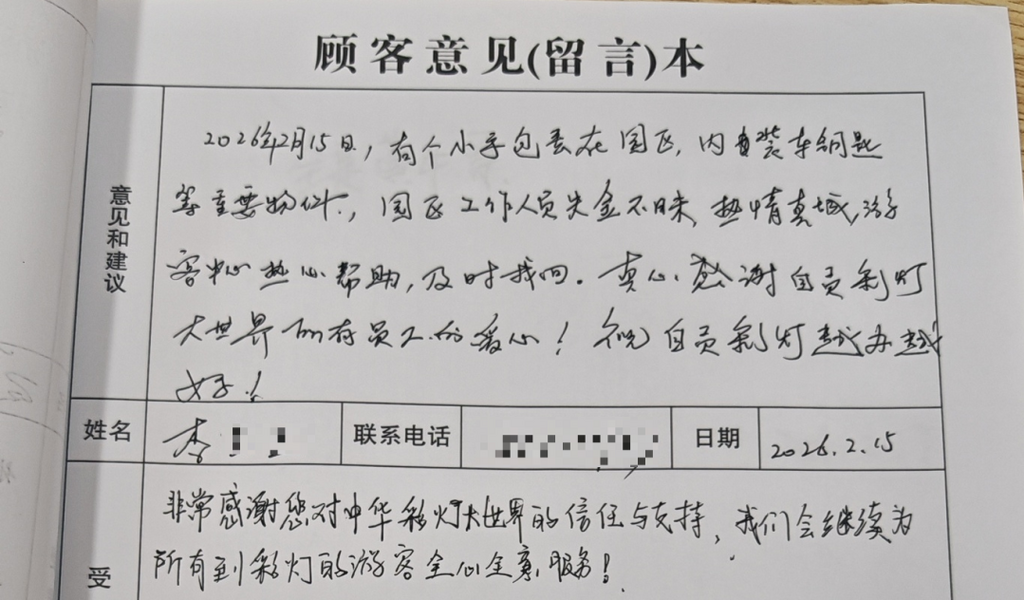 顾客意见(留言)本
意见和建议
2026年2月15日，有个小手包丢在园区，内装车钥匙
等重要物件，园区工作人员失金不昧，热情真诚，游
客中心热心帮助，及时找回。真心感谢自贡彩灯
大世界所有员工的爱心！祝自贡彩灯越办越
好！
姓名 李 联系电话 日期 2026.2.15
非常感谢您对中华彩灯大世界的信任与支持，我们会继续为
所有到彩灯的游客全心全意服务！
受